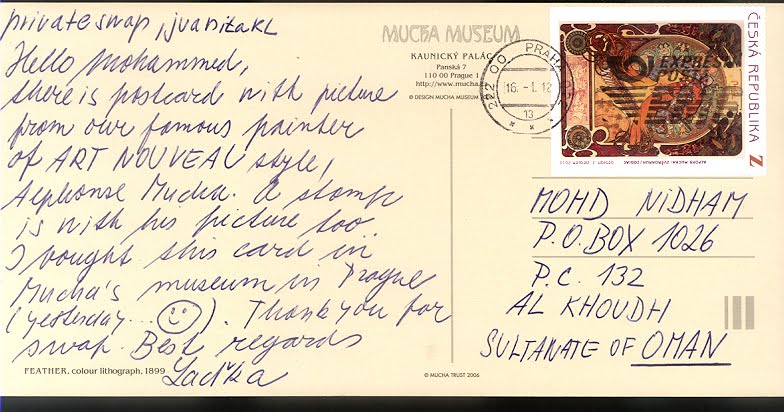 private swap, juanitaKL
Hello Mohammed,
there is postcard with picture
from our famous painter
of ART NOUVEAU style,
Alphonse Mucha. A stamp
is with his picture too.
I bought this card in
Mucha's museum in Prague
(yesterday... ). Thank you for
swap. Best regards
Laďka
FEATHER, colour lithograph, 1899
MUCHA MUSEUM
KAUNICKÝ PALÁC
Panská 7
110 00 Prague 1
http://www.mucha
© DESIGN MUCHA MUSEUM
© MUCHA TRUST 2006
222 00 PRAHA
16. -1. 12
13
ČESKÁ REPUBLIKA
Z
MOHD NIDHAM
P.O. BOX 1026
P.C. 132
AL KHOUDH
SULTANATE OF OMAN